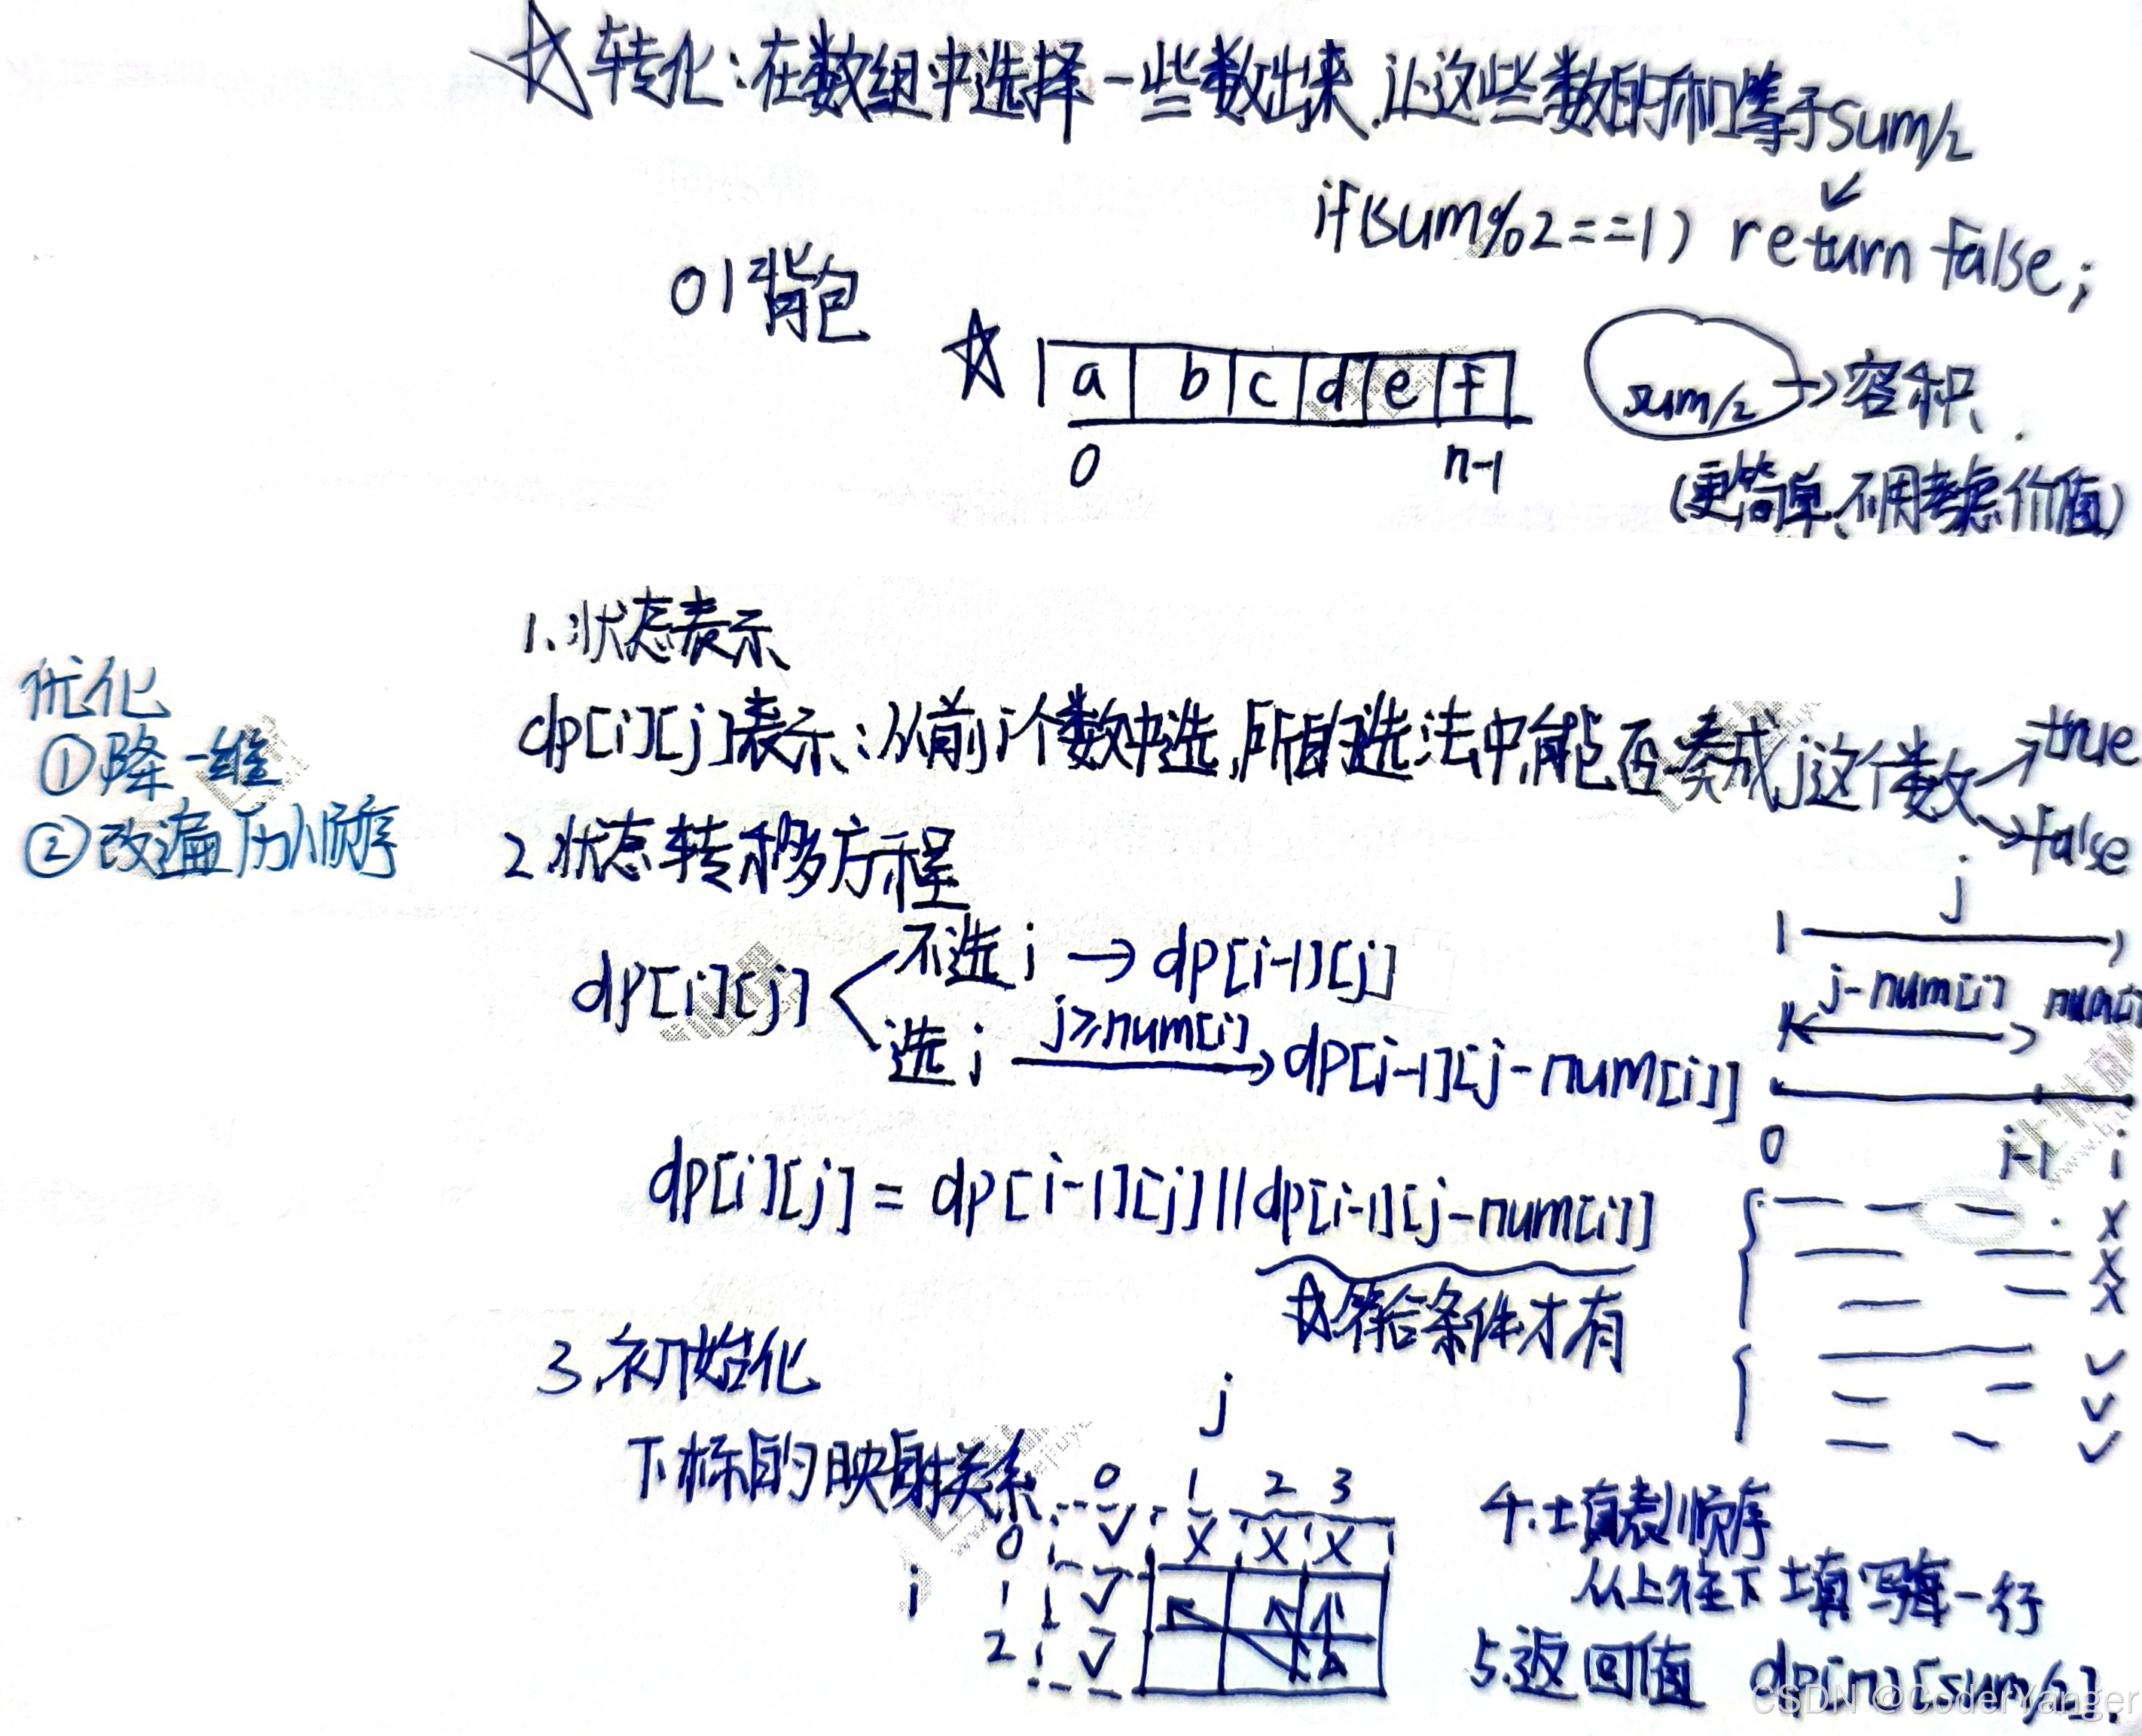 ☆转化:在数组中选择一些数出来,让这些数的和等于sum/2
if(sum%2==1) return false;
01背包
☆ a b c d e f
0 n-1
sum/2 → 容积
(更简单,不用考虑价值)
优化
①降一维
②改遍历顺序
1.状态表示
dp[i][j]表示:从前i个数中选,所有选法中,能否凑成j这个数
true
false
2.状态转移方程
dp[i][j]
不选i → dp[i-1][j]
选i j≥num[i] → dp[i-1][j-num[i]]
dp[i][j] = dp[i-1][j] || dp[i-1][j-num[i]]
☆符合条件才有
j
j-num[i] num[i]
0 i-1 i
x
x
x
✓
✓
✓
3.初始化
下标的映射关系
j
0 1 2 3
0 ✓ x x x
i 1 ✓
2 ✓
4.填表顺序
从上往下填写每一行
5.返回值 dp[n][sum/2].
CSDN @CoderYanger